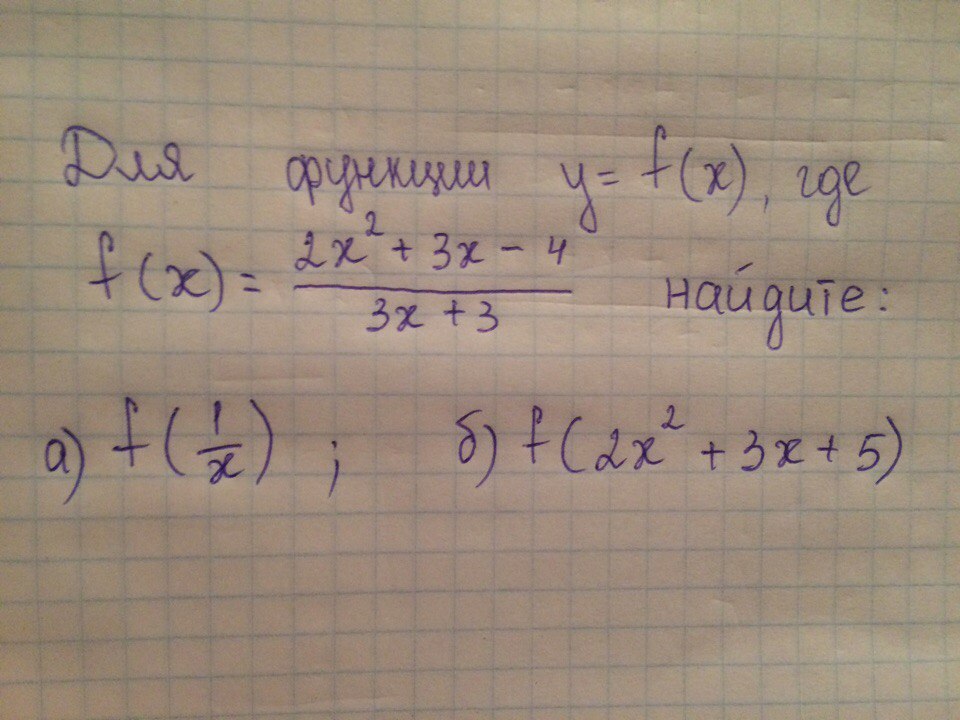 Для функции y = f(x), где
f(x) = \frac{2x^2 + 3x - 4}{3x + 3} найдите:
а) f(\frac{1}{x}) ; б) f(2x^2 + 3x + 5)